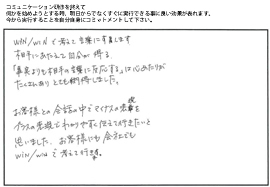 コミュニケーション研修を終えて
何かを始めようとする時、明日からでなくすぐに実行できる事に良い効果が表れます。
今から実行することを自分自身にコミットメントして下さい。
WIN/WINで考えて言葉に写します
相手にあたえて自分が得る
「事実よりも相手の言葉に反応する」は心あたりが
たくさんありとても納得しました。
お客様との会話の中でマイナスの表現を
プラスの表現でわかりやすく伝えて行きたいと
思いました。お客様にも会社でも
WIN/WINで考えて行きます。